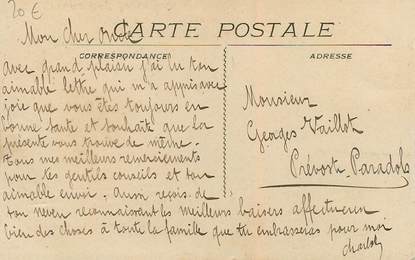 20 €
CARTE POSTALE
Mon cher oncle
CORRESPONDANCE
ADRESSE
avec grand plaisir j'ai lu ton
aimable lettre qui m'a appris avec
joie que vous êtes toujours en
bonne santé et souhaite que la
présente vous trouve de même.
Tous mes meilleurs remerciements
pour tes gentils conseils et ton
aimable envoi. Aussi reçois de
ton neveu reconnaissant les meilleurs baisers affectueux
bien des choses à toute la famille que tu embrasseras pour moi
Charlot
Monsieur
Georges Vaillot
Prévost-Paradol